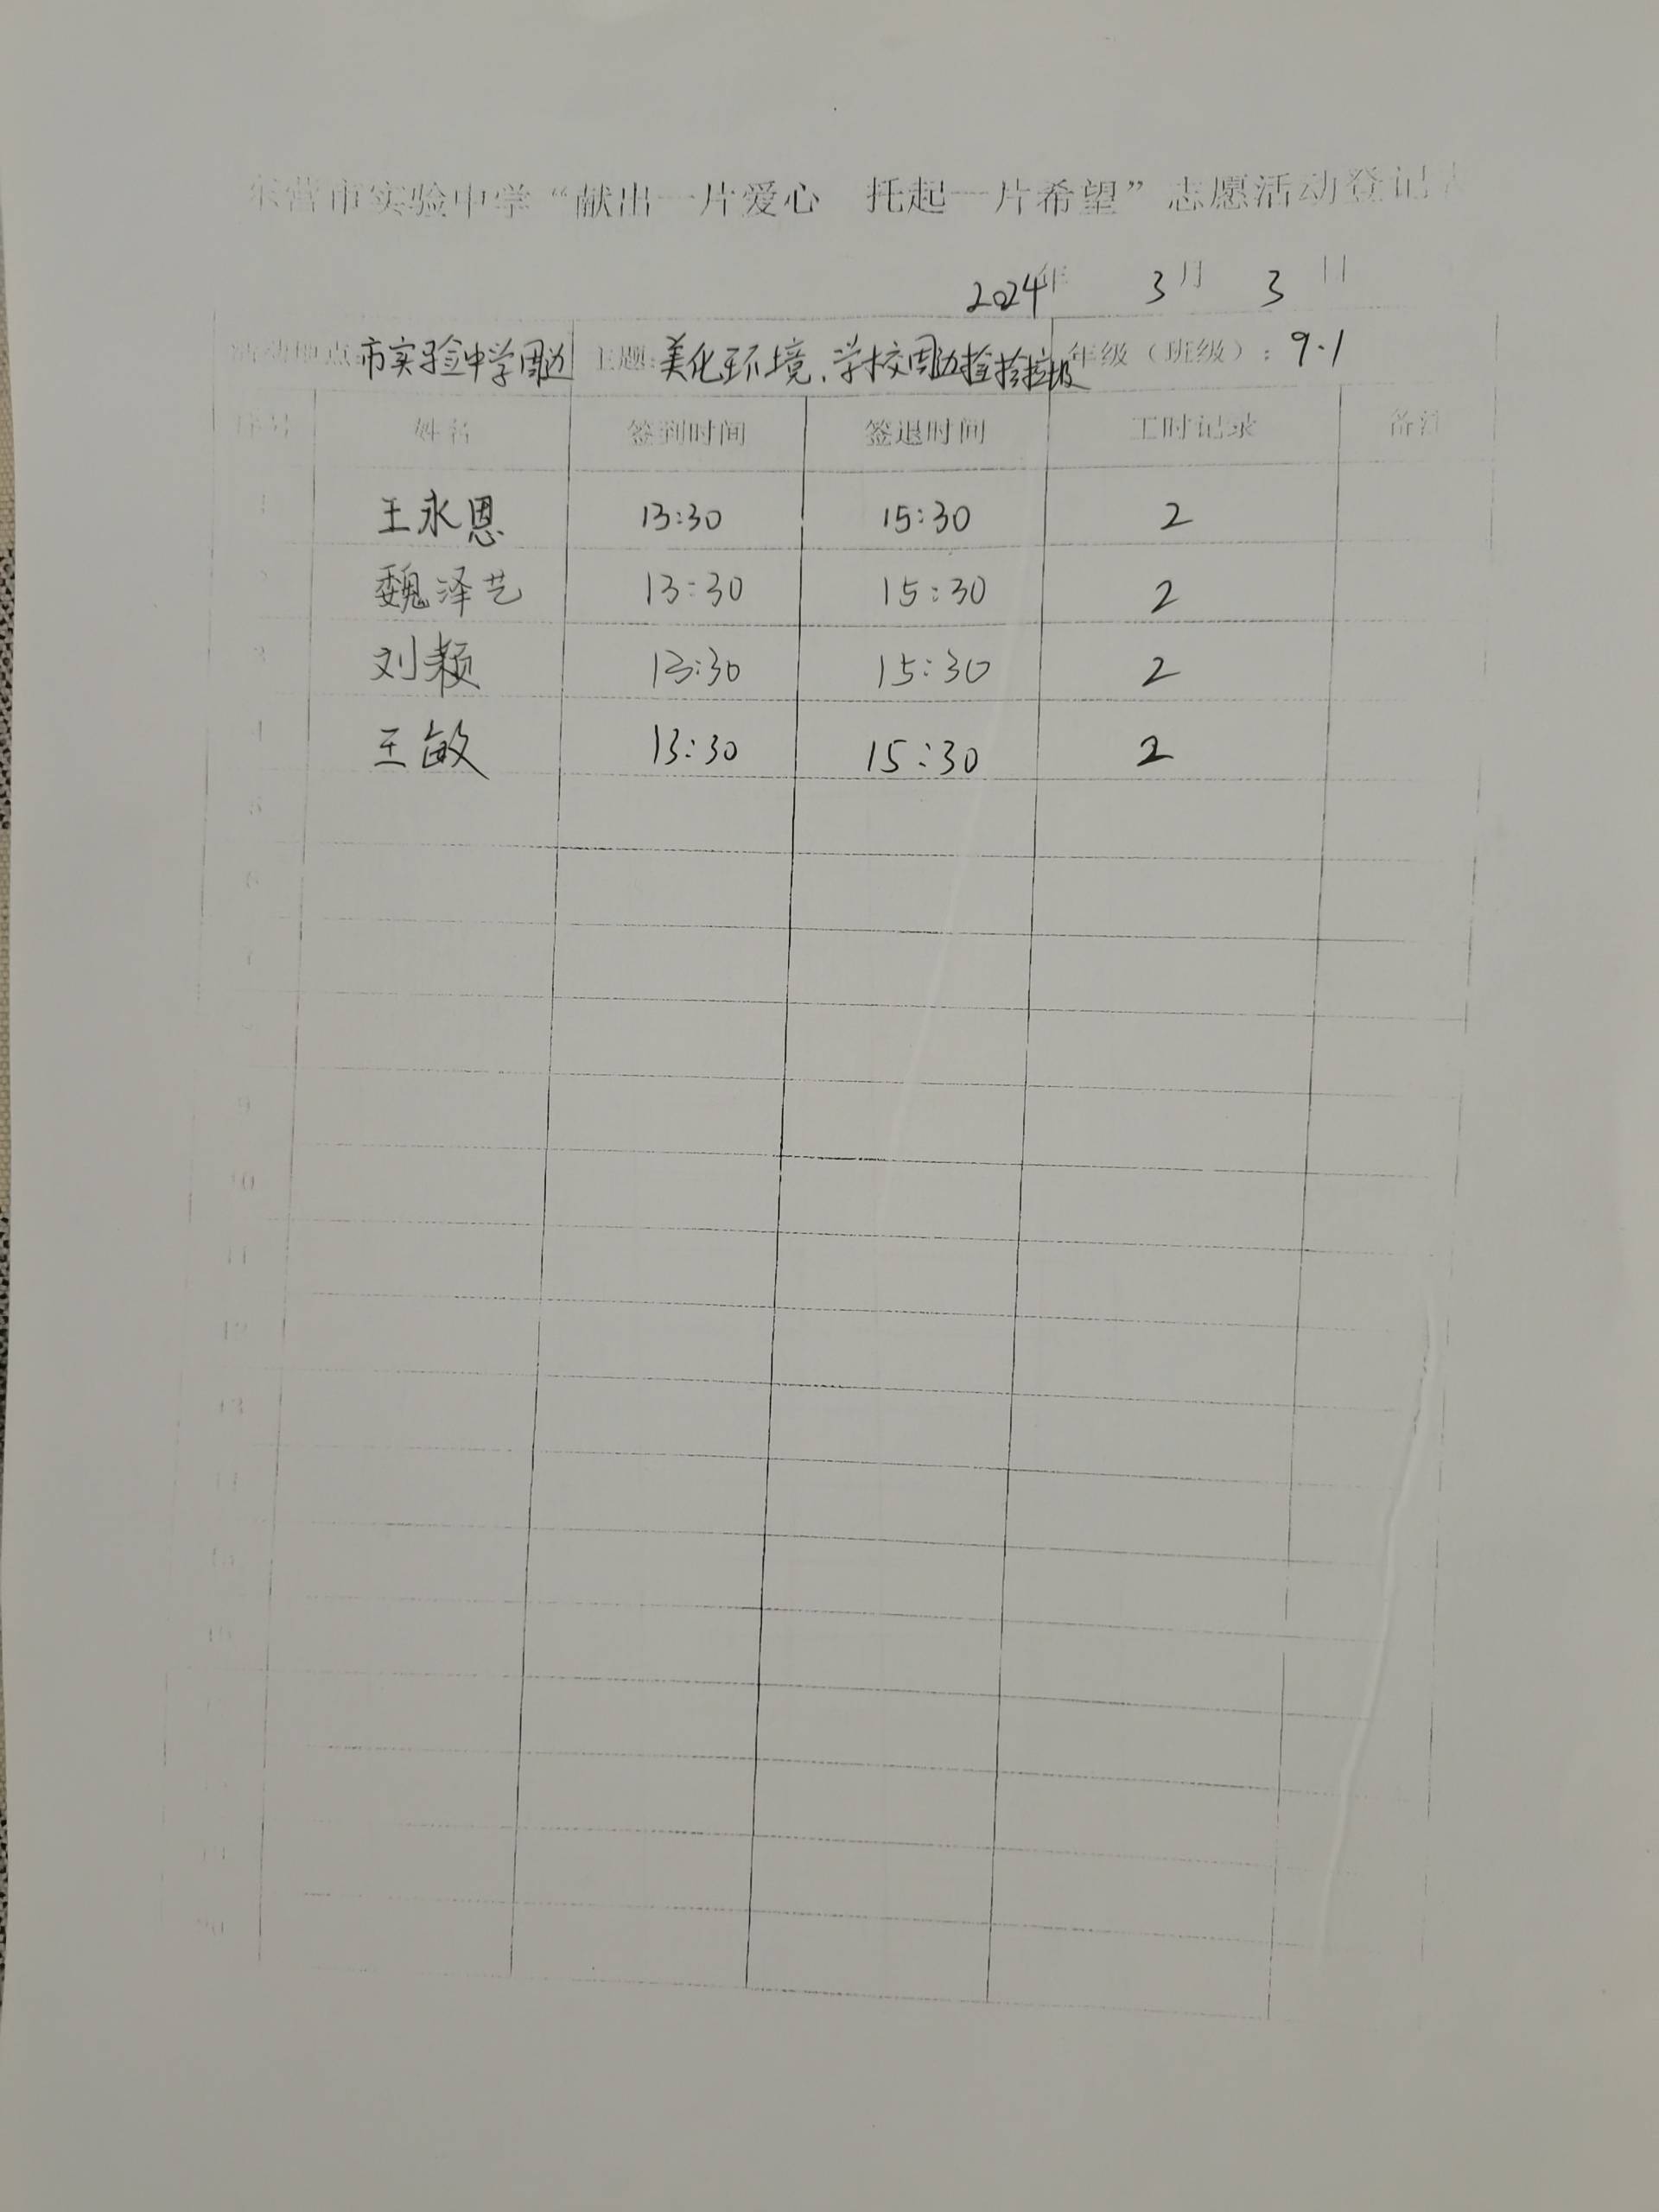 东营市实验中学“献出一片爱心 托起一片希望”志愿活动登记
2024年 3月 3日
活动地点:市实验中学周边 主题:美化环境、学校周边捡拾垃圾 年级（班级）：9.1
序号 姓名 签到时间 签退时间 工时记录 备注
1 王永恩 13:30 15:30 2
2 魏泽艺 13:30 15:30 2
3 刘颖 13:30 15:30 2
4 王敏 13:30 15:30 2
5
6
7
9
10
11
12
13
14
15
16
19
20